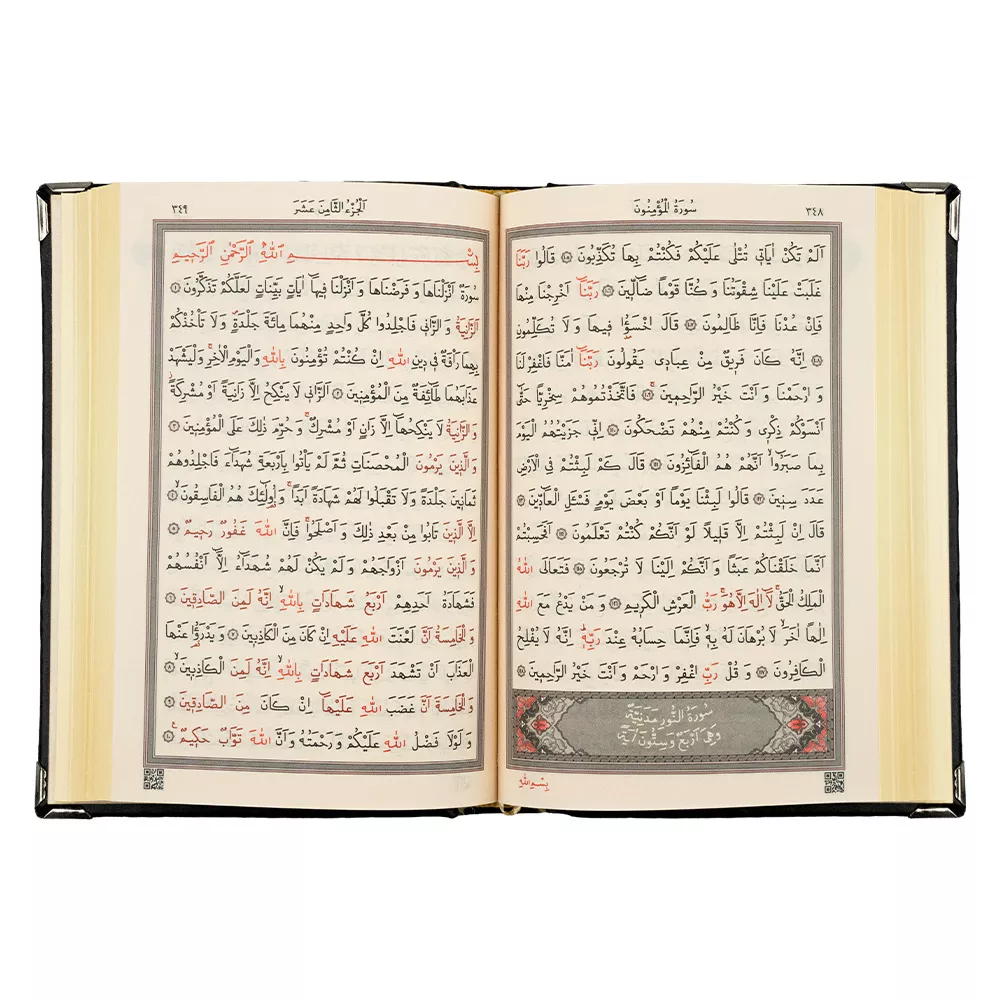 ٣٤٨
سُورَةُ الْمُؤْمِنُونَ
اَلَمْ تَكُنْ اٰيَاتٖي تُتْلٰى عَلَيْكُمْ فَكُنْتُمْ بِهَا تُكَذِّبُونَ ١٠٥ قَالُوا رَبَّنَا
غَلَبَتْ عَلَيْنَا شِقْوَتُنَا وَ كُنَّا قَوْمًا ضَٓالّٖينَ ١٠٦ رَبَّنَٓا اَخْرِجْنَا مِنْهَا
فَاِنْ عُدْنَا فَاِنَّا ظَالِمُونَ ١٠٧ قَالَ اخْسَؤُ۫ا فٖيهَا وَ لَا تُكَلِّمُونِ
١٠٨ اِنَّهُ كَانَ فَرٖيقٌ مِنْ عِبَادٖي يَقُولُونَ رَبَّنَٓا اٰمَنَّا فَاغْفِرْ لَنَا
وَ ارْحَمْنَا وَ اَنْتَ خَيْرُ الرَّاحِمٖينَ ١٠٩ فَاتَّخَذْتُمُوهُمْ سِخْرِيًّا حَتّٰٓى
اَنْسَوْكُمْ ذِكْرٖي وَ كُنْتُمْ مِنْهُمْ تَضْحَكُونَ ١١٠ اِنّٖي جَزَيْتُهُمُ الْيَوْمَ
بِمَا صَبَرُٓوا اَنَّهُمْ هُمُ الْفَٓائِزُونَ ١١١ قَالَ كَمْ لَبِثْتُمْ فِي الْاَرْضِ
عَدَدَ سِنٖينَ ١١٢ قَالُوا لَبِثْنَا يَوْمًا اَوْ بَعْضَ يَوْمٍ فَسْـَٔلِ الْعَٓادّٖينَ ١١٣
قَالَ اِنْ لَبِثْتُمْ اِلَّا قَلٖيلًا لَوْ اَنَّكُمْ كُنْتُمْ تَعْلَمُونَ ١١٤ اَفَحَسِبْتُمْ
اَنَّمَا خَلَقْنَاكُمْ عَبَثًا وَ اَنَّكُمْ اِلَيْنَا لَا تُرْجَعُونَ ١١٥ فَتَعَالَى اللّٰهُ
الْمَلِكُ الْحَقُّ لَٓا اِلٰهَ اِلَّا هُوَ رَبُّ الْعَرْشِ الْكَرٖيمِ ١١٦ وَ مَنْ يَدْعُ مَعَ اللّٰهِ
اِلٰهًا اٰخَرَ لَا بُرْهَانَ لَهُ بِهٖ فَاِنَّمَا حِسَابُهُ عِنْدَ رَبِّهٖ اِنَّهُ لَا يُفْلِحُ
الْكَافِرُونَ ١١٧ وَ قُلْ رَبِّ اغْفِرْ وَ ارْحَمْ وَ اَنْتَ خَيْرُ الرَّاحِمٖينَ ١١٨
سُورَةُ النُّورِ مَدَنِيَّةٌ
وَهِيَ اَرْبَعٌ وَ سِتُّونَ اٰيَةً
بِسْمِ اللّٰهِ
اَلْجُزْءُ الثَّامِنَ عَشَرَ
٣٤٩
بِسْمِ اللّٰهِ الرَّحْمٰنِ الرَّحٖيمِ
سُورَةٌ اَنْزَلْنَاهَا وَ فَرَضْنَاهَا وَ اَنْزَلْنَا فٖيهَٓا اٰيَاتٍ بَيِّنَاتٍ لَعَلَّكُمْ تَذَكَّرُونَ ١
اَلزَّانِيَةُ وَ الزَّانٖي فَاجْلِدُوا كُلَّ وَاحِدٍ مِنْهُمَا مِائَةَ جَلْدَةٍ وَ لَا تَأْخُذْكُمْ
بِهِمَا رَأْفَةٌ فٖي دٖينِ اللّٰهِ اِنْ كُنْتُمْ تُؤْمِنُونَ بِاللّٰهِ وَالْيَوْمِ الْاٰخِرِ وَلْيَشْهَدْ
عَذَابَهُمَا طَٓائِفَةٌ مِنَ الْمُؤْمِنٖينَ ٢ اَلزَّانٖي لَا يَنْكِحُ اِلَّا زَانِيَةً اَوْ مُشْرِكَةً
وَ الزَّانِيَةُ لَا يَنْكِحُهَٓا اِلَّا زَانٍ اَوْ مُشْرِكٌ وَ حُرِّمَ ذٰلِكَ عَلَى الْمُؤْمِنٖينَ ٣
وَ الَّذٖينَ يَرْمُونَ الْمُحْصَنَاتِ ثُمَّ لَمْ يَأْتُوا بِاَرْبَعَةِ شُهَدَٓاءَ فَاجْلِدُوهُمْ
ثَمَانٖينَ جَلْدَةً وَلَا تَقْبَلُوا لَهُمْ شَهَادَةً اَبَدًا وَ اُو۬لٰٓئِكَ هُمُ الْفَاسِقُونَ ٤
اِلَّا الَّذٖينَ تَابُوا مِنْ بَعْدِ ذٰلِكَ وَ اَصْلَحُوا فَاِنَّ اللّٰهَ غَفُورٌ رَحٖيمٌ ٥
وَ الَّذٖينَ يَرْمُونَ اَزْوَاجَهُمْ وَلَمْ يَكُنْ لَهُمْ شُهَدَٓاءُ اِلَّٓا اَنْفُسُهُمْ
فَشَهَادَةُ اَحَدِهِمْ اَرْبَعُ شَهَادَاتٍ بِاللّٰهِ اِنَّهُ لَمِنَ الصَّادِقٖينَ ٦
وَ الْخَامِسَةُ اَنَّ لَعْنَتَ اللّٰهِ عَلَيْهِ اِنْ كَانَ مِنَ الْكَاذِبٖينَ ٧ وَ يَدْرَؤُ۬ا عَنْهَا
الْعَذَابَ اَنْ تَشْهَدَ اَرْبَعَ شَهَادَاتٍ بِاللّٰهِ اِنَّهُ لَمِنَ الْكَاذِبٖينَ ٨
وَ الْخَامِسَةَ اَنَّ غَضَبَ اللّٰهِ عَلَيْهَٓا اِنْ كَانَ مِنَ الصَّادِقٖينَ ٩
وَ لَوْلَا فَضْلُ اللّٰهِ عَلَيْكُمْ وَ رَحْمَتُهُ وَ اَنَّ اللّٰهَ تَوَّابٌ حَكٖيمٌ ١٠